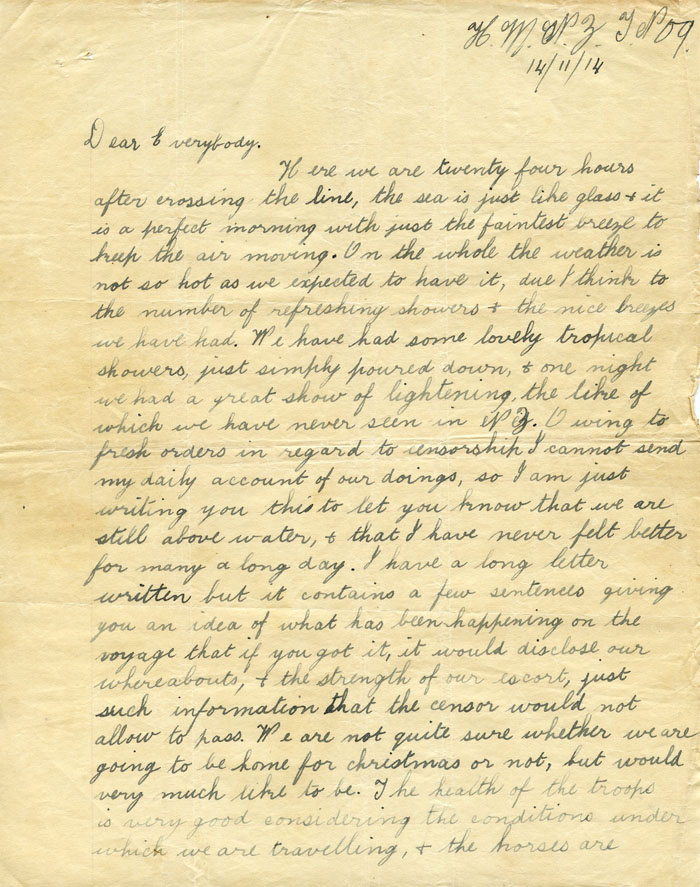 H. M. N. Z. T. No 9.
14/11/14
Dear Everybody.
Here we are twenty four hours
after crossing the line, the sea is just like glass & it
is a perfect morning with just the faintest breeze to
keep the air moving. On the whole the weather is
not so hot as we expected to have it, due I think to
the number of refreshing showers & the nice breezes
we have had. We have had some lovely tropical
showers, just simply poured down, & one night
we had a great show of lightening, the like of
which we have never seen in N Z. Owing to
fresh orders in regard to censorship I cannot send
my daily account of our doings, so I am just
writing you this to let you know that we are
still above water, & that I have never felt better
for many a long day. I have a long letter
written but it contains a few sentences giving
you an idea of what has been happening on the
voyage that if you got it, it would disclose our
whereabouts, & the strength of our escort, just
such information that the censor would not
allow to pass. We are not quite sure whether we are
going to be home for christmas or not, but would
very much like to be. The health of the troops
is very good considering the conditions under
which we are travelling, & the horses are